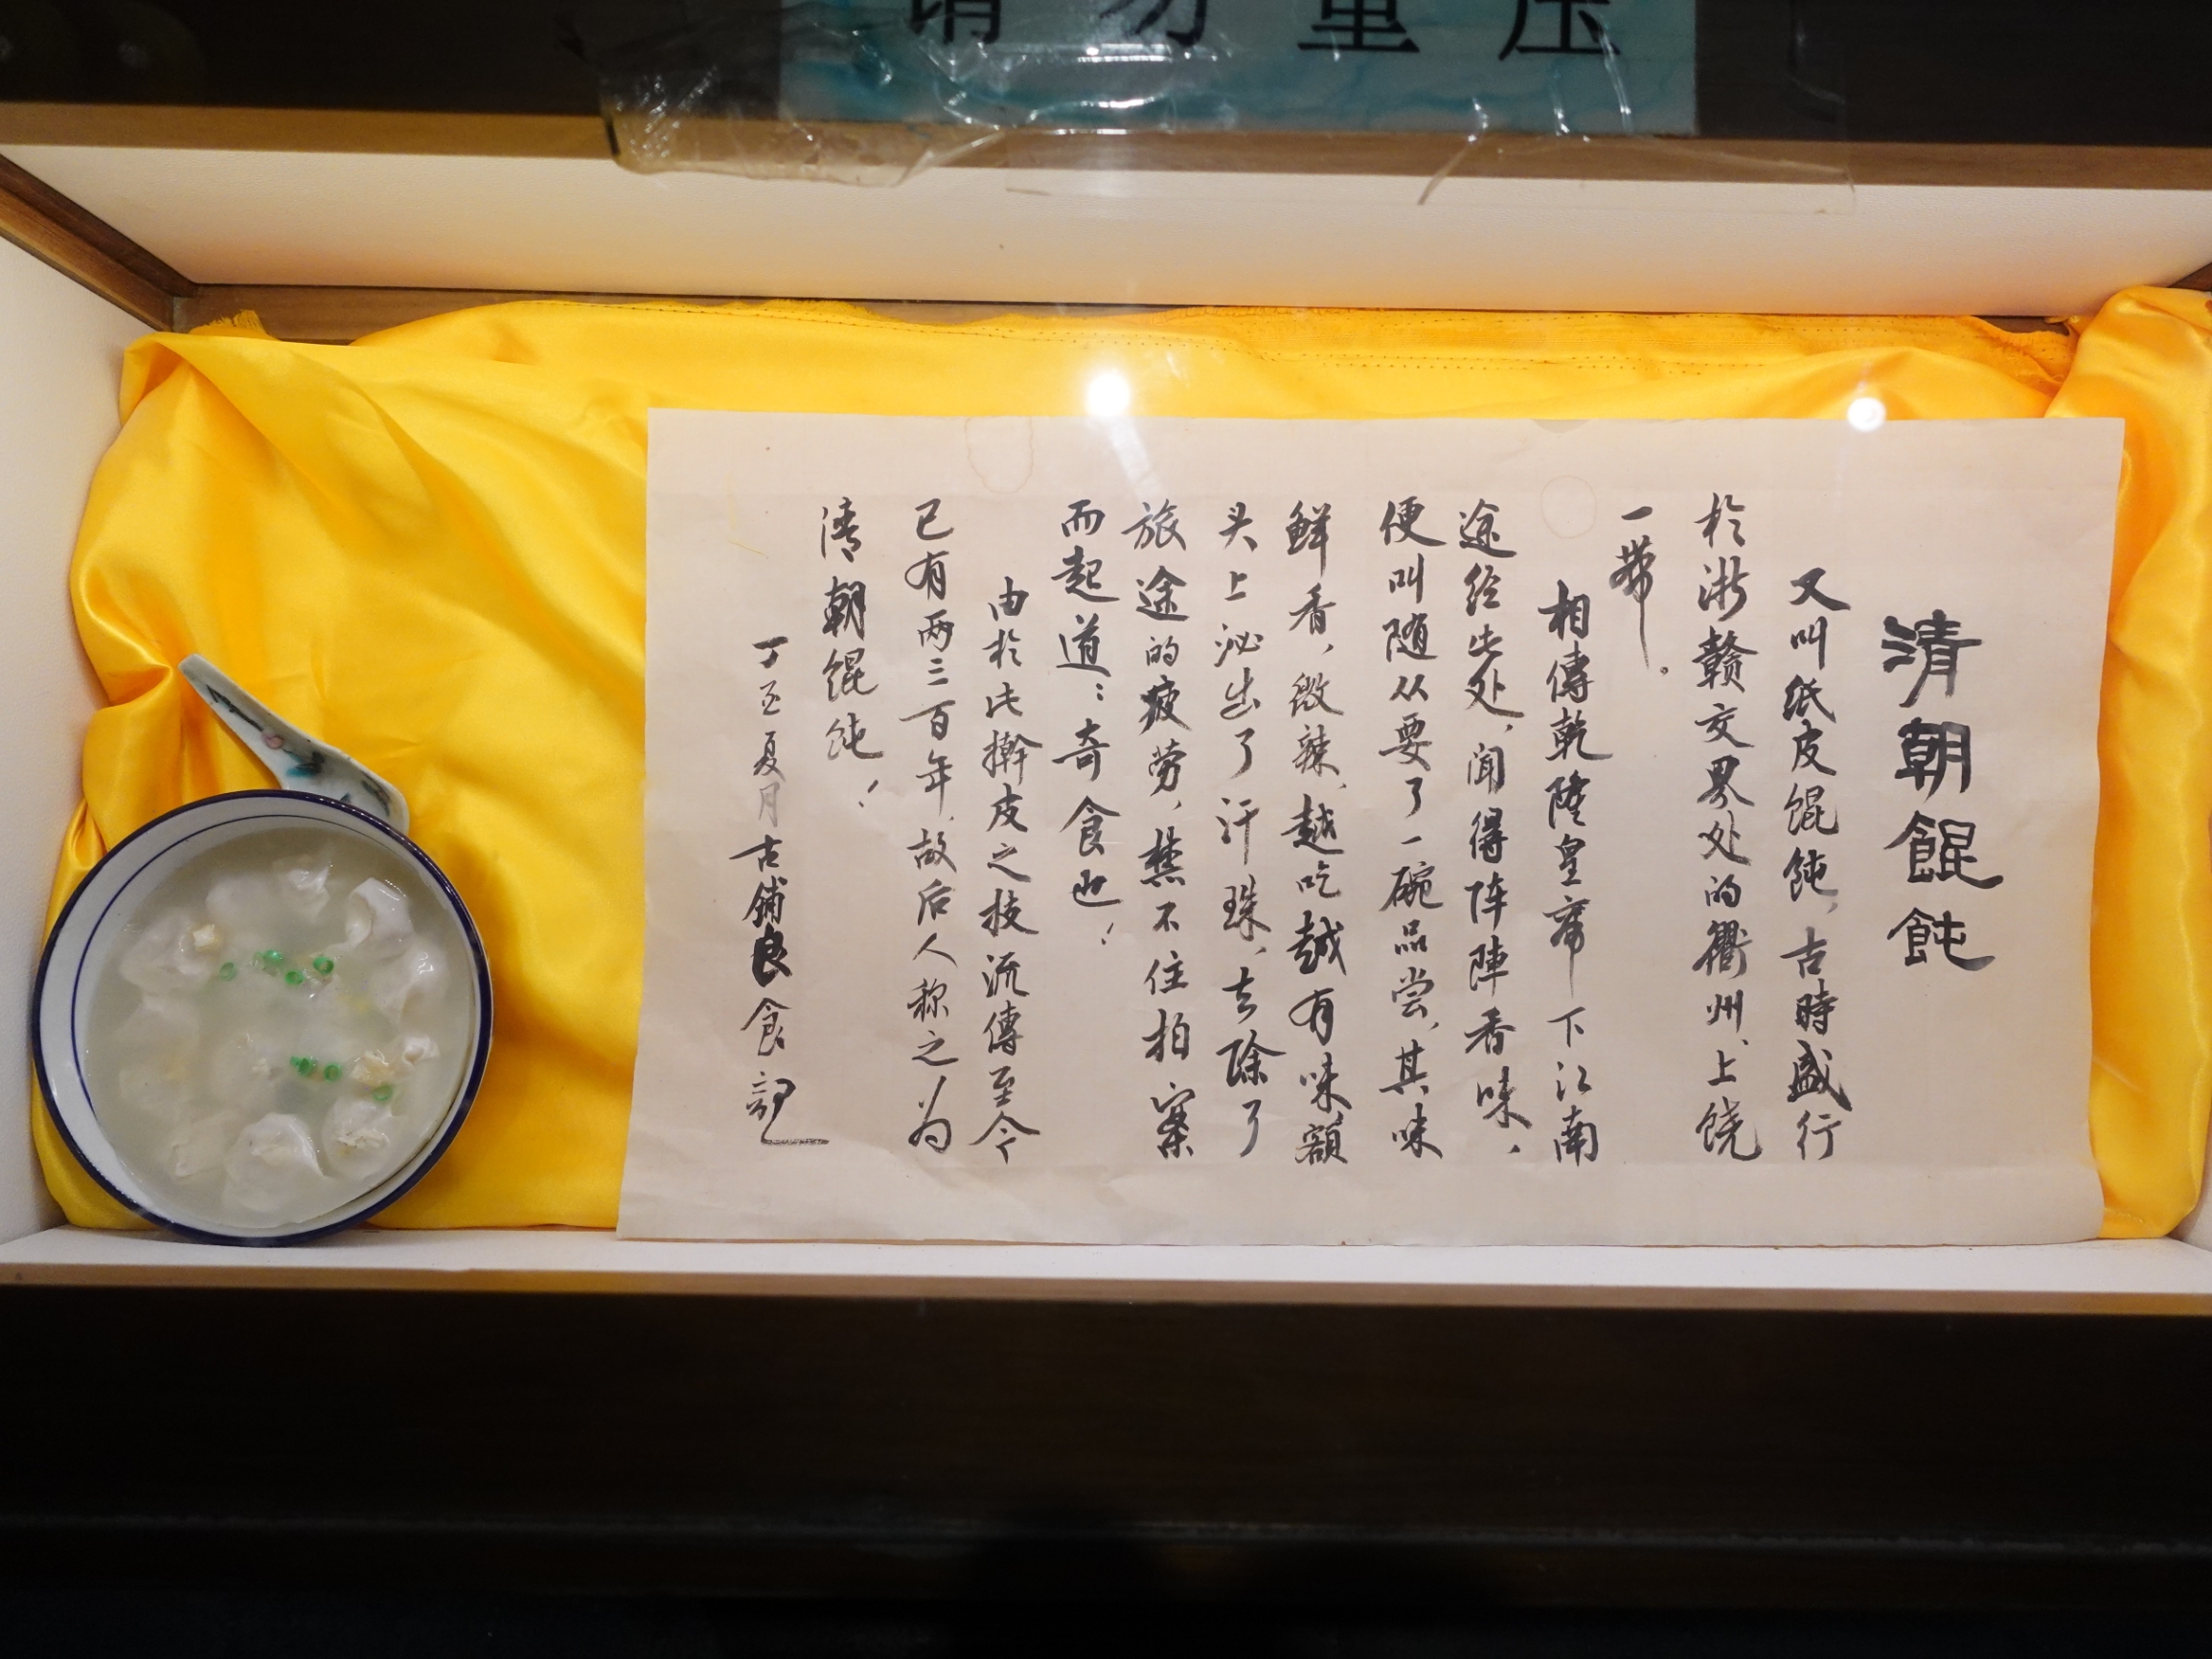 请勿重压
清朝餛飩
又叫紙皮餛飩,古時盛行
於浙赣交界处的衢州、上饶
一带。
相傳乾隆皇帝下江南
途经此处,闻得阵陣香味,
便叫随从要了一碗品尝,其味
鲜香,微辣,越吃越有味額
头上泌出了汗珠,去除了
旅途的疲劳,禁不住拍案
而起道:奇食也!
由於此擀皮之技流傳至今
已有两三百年,故后人称之为
清朝餛飩!
丁丑夏月古铺良食記